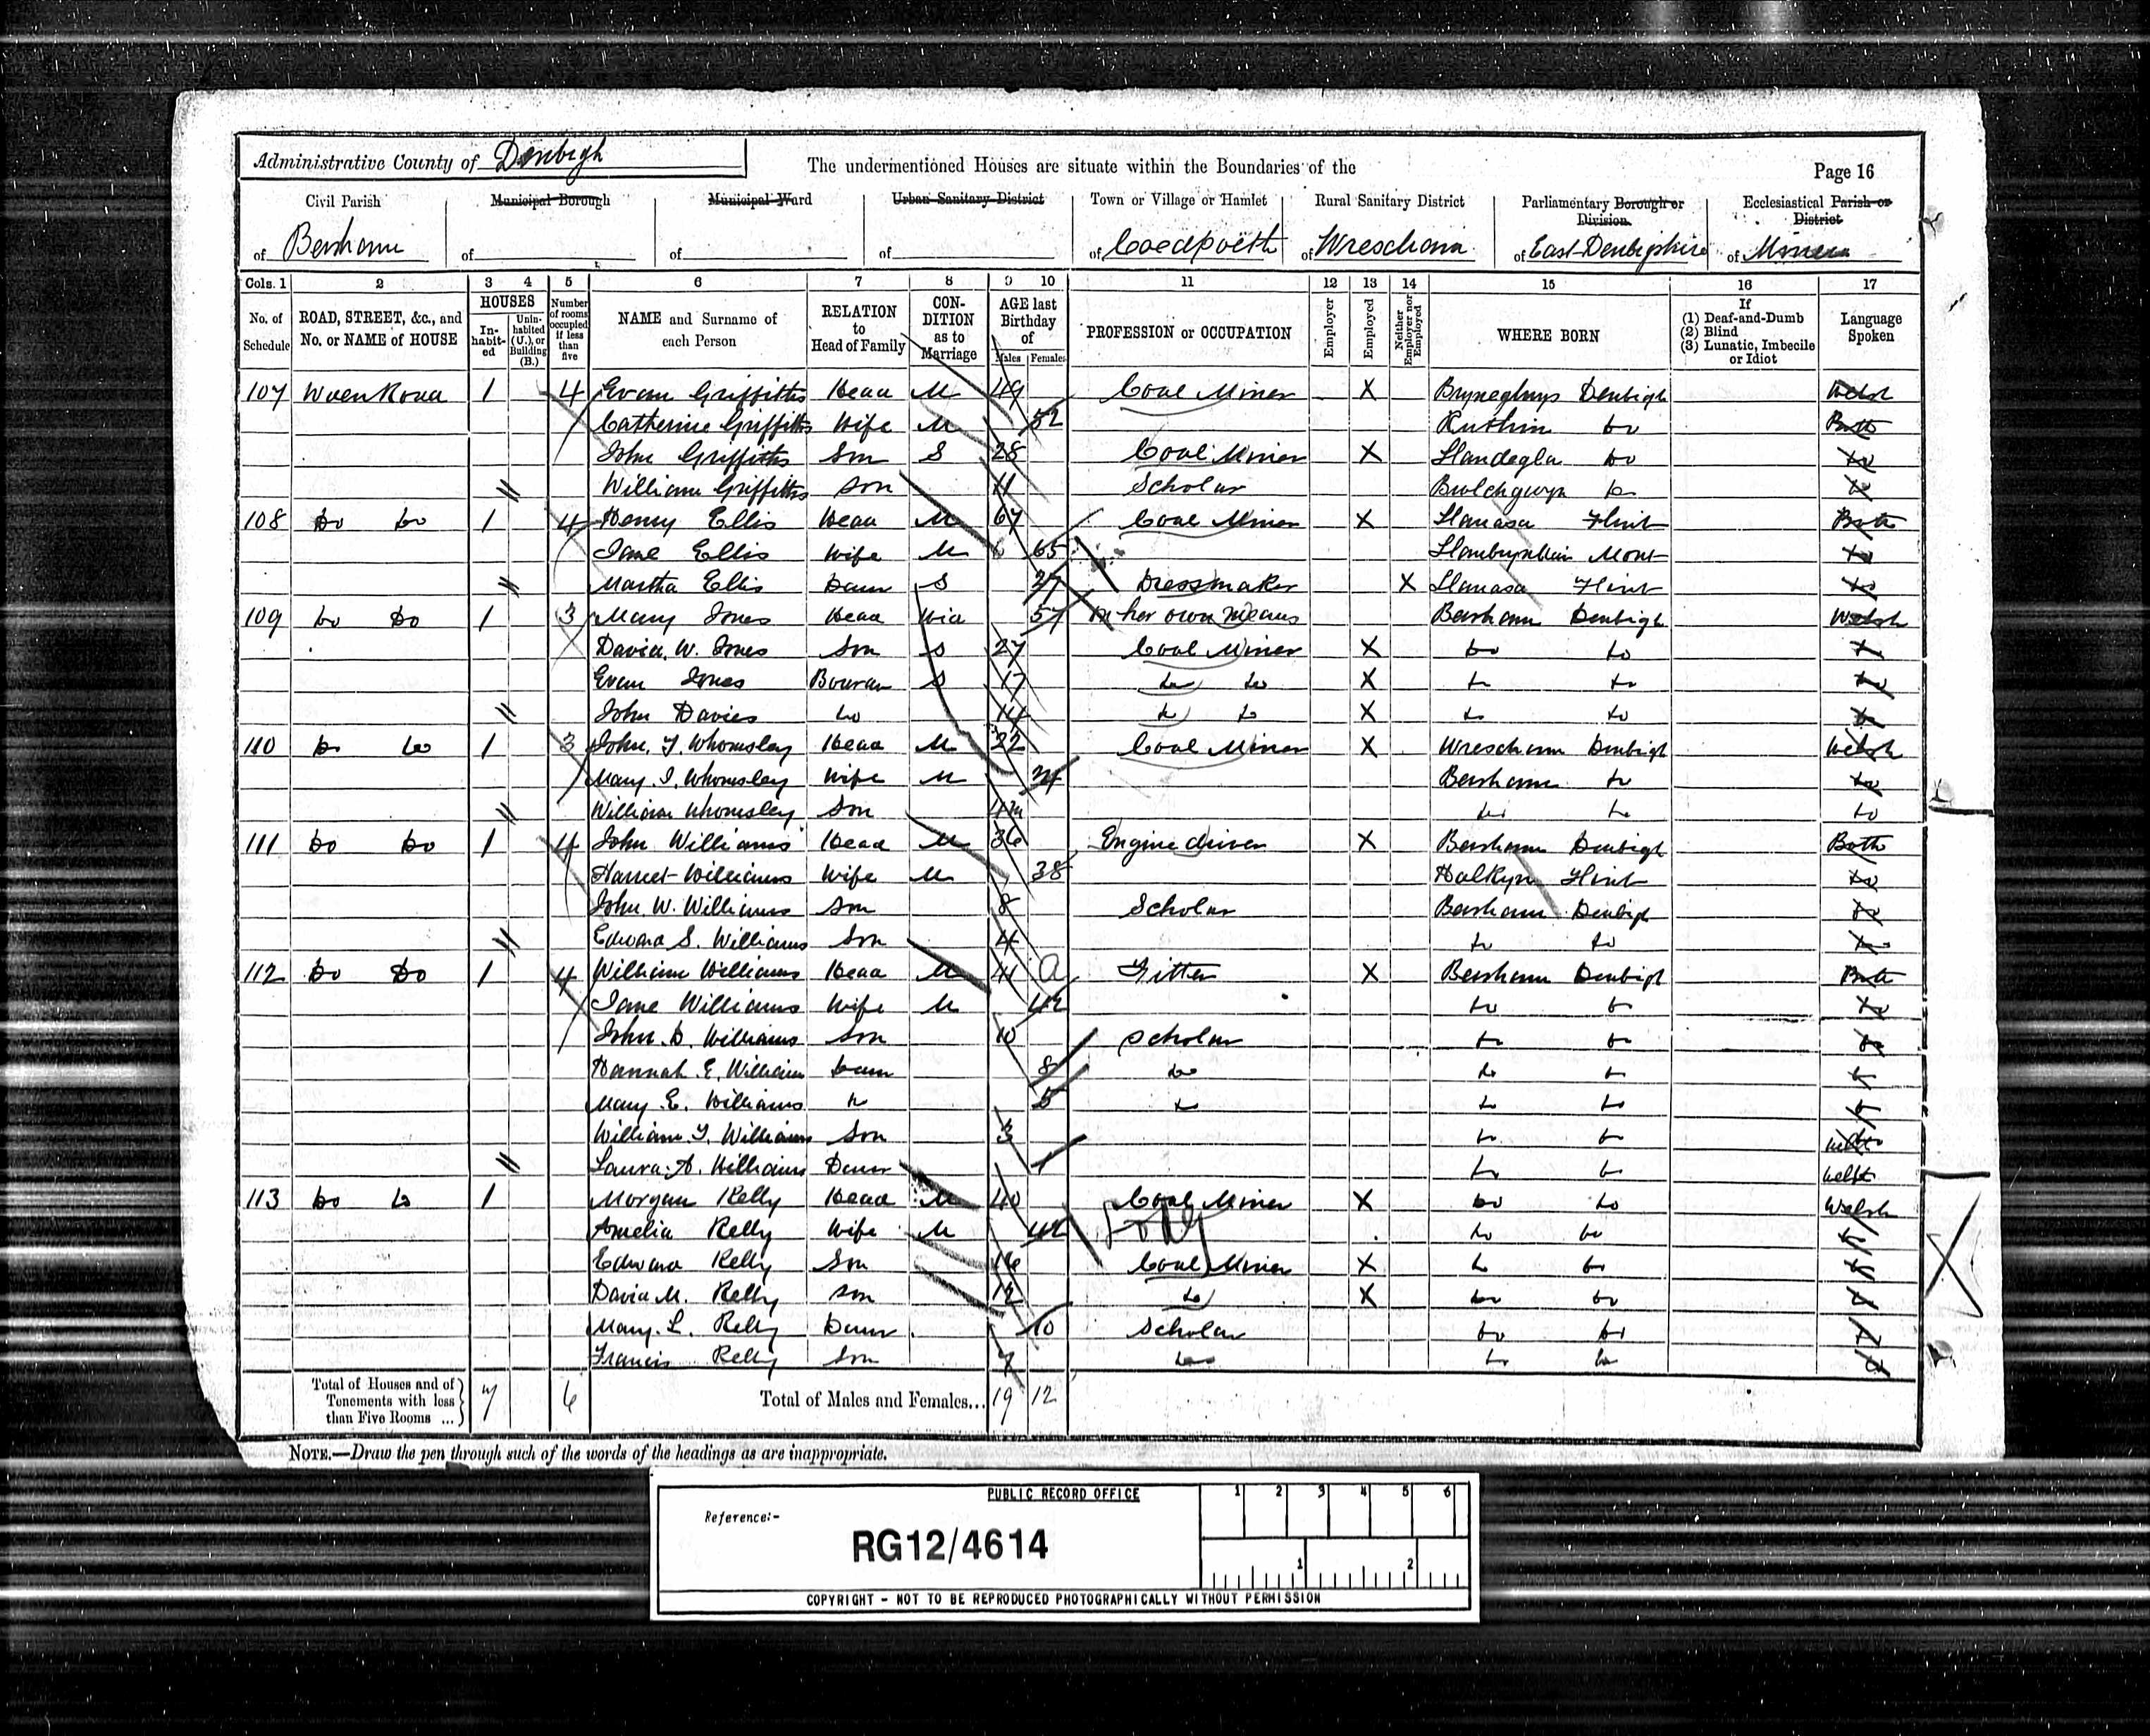 Administrative County of Denbigh
The undermentioned Houses are situate within the Boundaries of the
Page 16
Civil Parish of Bersham
Municipal Borough of
Municipal Ward of
Urban Sanitary District of
Town or Village or Hamlet of Coedpoeth
Rural Sanitary District of Wrescham
Parliamentary Borough or Division of East Denbigshire
Ecclesiastical Parish or District of Minera
Cols. 1 2 3 4 5 6 7 8 9 10 11 12 13 14 15 16 17
No. of Schedule
ROAD, STREET, &c., and No. or NAME of HOUSE
HOUSES
In-habit-ed
Unin-habited (U.), or Building (B.)
Number of rooms occupied if less than five
NAME and Surname of each Person
RELATION to Head of Family
CON-DITION as to Marriage
AGE last Birthday of
Males Females
PROFESSION or OCCUPATION
Employer
Employed
Neither Employer nor Employed
WHERE BORN
If
(1) Deaf-and-Dumb
(2) Blind
(3) Lunatic, Imbecile or Idiot
Language Spoken
107 1 4 Evan Griffiths Head M 49 Coal Miner X Denbigh Welsh
Catherine Griffiths Wife M 52 Ruthin do Both
John Griffiths Son S 28 Coal Miner X Llandegla do do
William Griffiths Son 11 Scholar Bwlchgwyn do do
108 do do 1 4 Henry Ellis Head M 67 Coal Miner X Llanasa Flint Both
Jane Ellis Wife M 65 Mont do
Martha Ellis Daur S 27 Dressmaker X Llanasa Flint do
109 do do 1 3 Mary Jones Head Wid 57 on her own means Bersham Denbigh Welsh
David. W. Jones Son S 27 Coal Miner X do do do
Evan Jones S 17 do do X do do do
John Davies do 14 do do X do do do
110 do do 1 3 John. T. Whomsley Head M 22 Coal Miner X Wrescham Denbigh Welsh
Mary. J. Whomsley Wife M 24 Bersham do do
William Whomsley Son 4m do do do
111 do do 1 4 John Williams Head M 36 Engine driver X Bersham Denbigh Both
Harriet Williams Wife M 38 Halkyn Flint do
John. W. Williams Son 8 Scholar Bersham Denbigh do
Edward S. Williams Son 4 do do do
112 do do 1 4 William Williams Head M 41 Fitter X Bersham Denbigh Both
Jane Williams Wife M 42 do do do
John. D. Williams Son 10 Scholar do do do
Hannah E. Williams Daur 8 do do do do
Mary. E. Williams do 5 do do do do
William. T. Williams Son 3 do do
Laura. A. Williams Daur 1 do do Welsh
113 do do 1 Morgan Kelly Head M 40 Coal Miner X do do Welsh
Amelia Kelly Wife M 42 do do do
Edward Kelly Son 16 Coal Miner X do do do
David M. Kelly Son 12 do X do do do
Mary. L. Kelly Daur 10 Scholar do do do
Francis Kelly Son 7 do do do do
Total of Houses and of Tenements with less than Five Rooms ... 7 6
Total of Males and Females... 19 12
NOTE.—Draw the pen through such of the words of the headings as are inappropriate.
PUBLIC RECORD OFFICE
1 2 3 4 5 6
Reference:-
RG12/4614
1 2
COPYRIGHT - NOT TO BE REPRODUCED PHOTOGRAPHICALLY WITHOUT PERMISSION